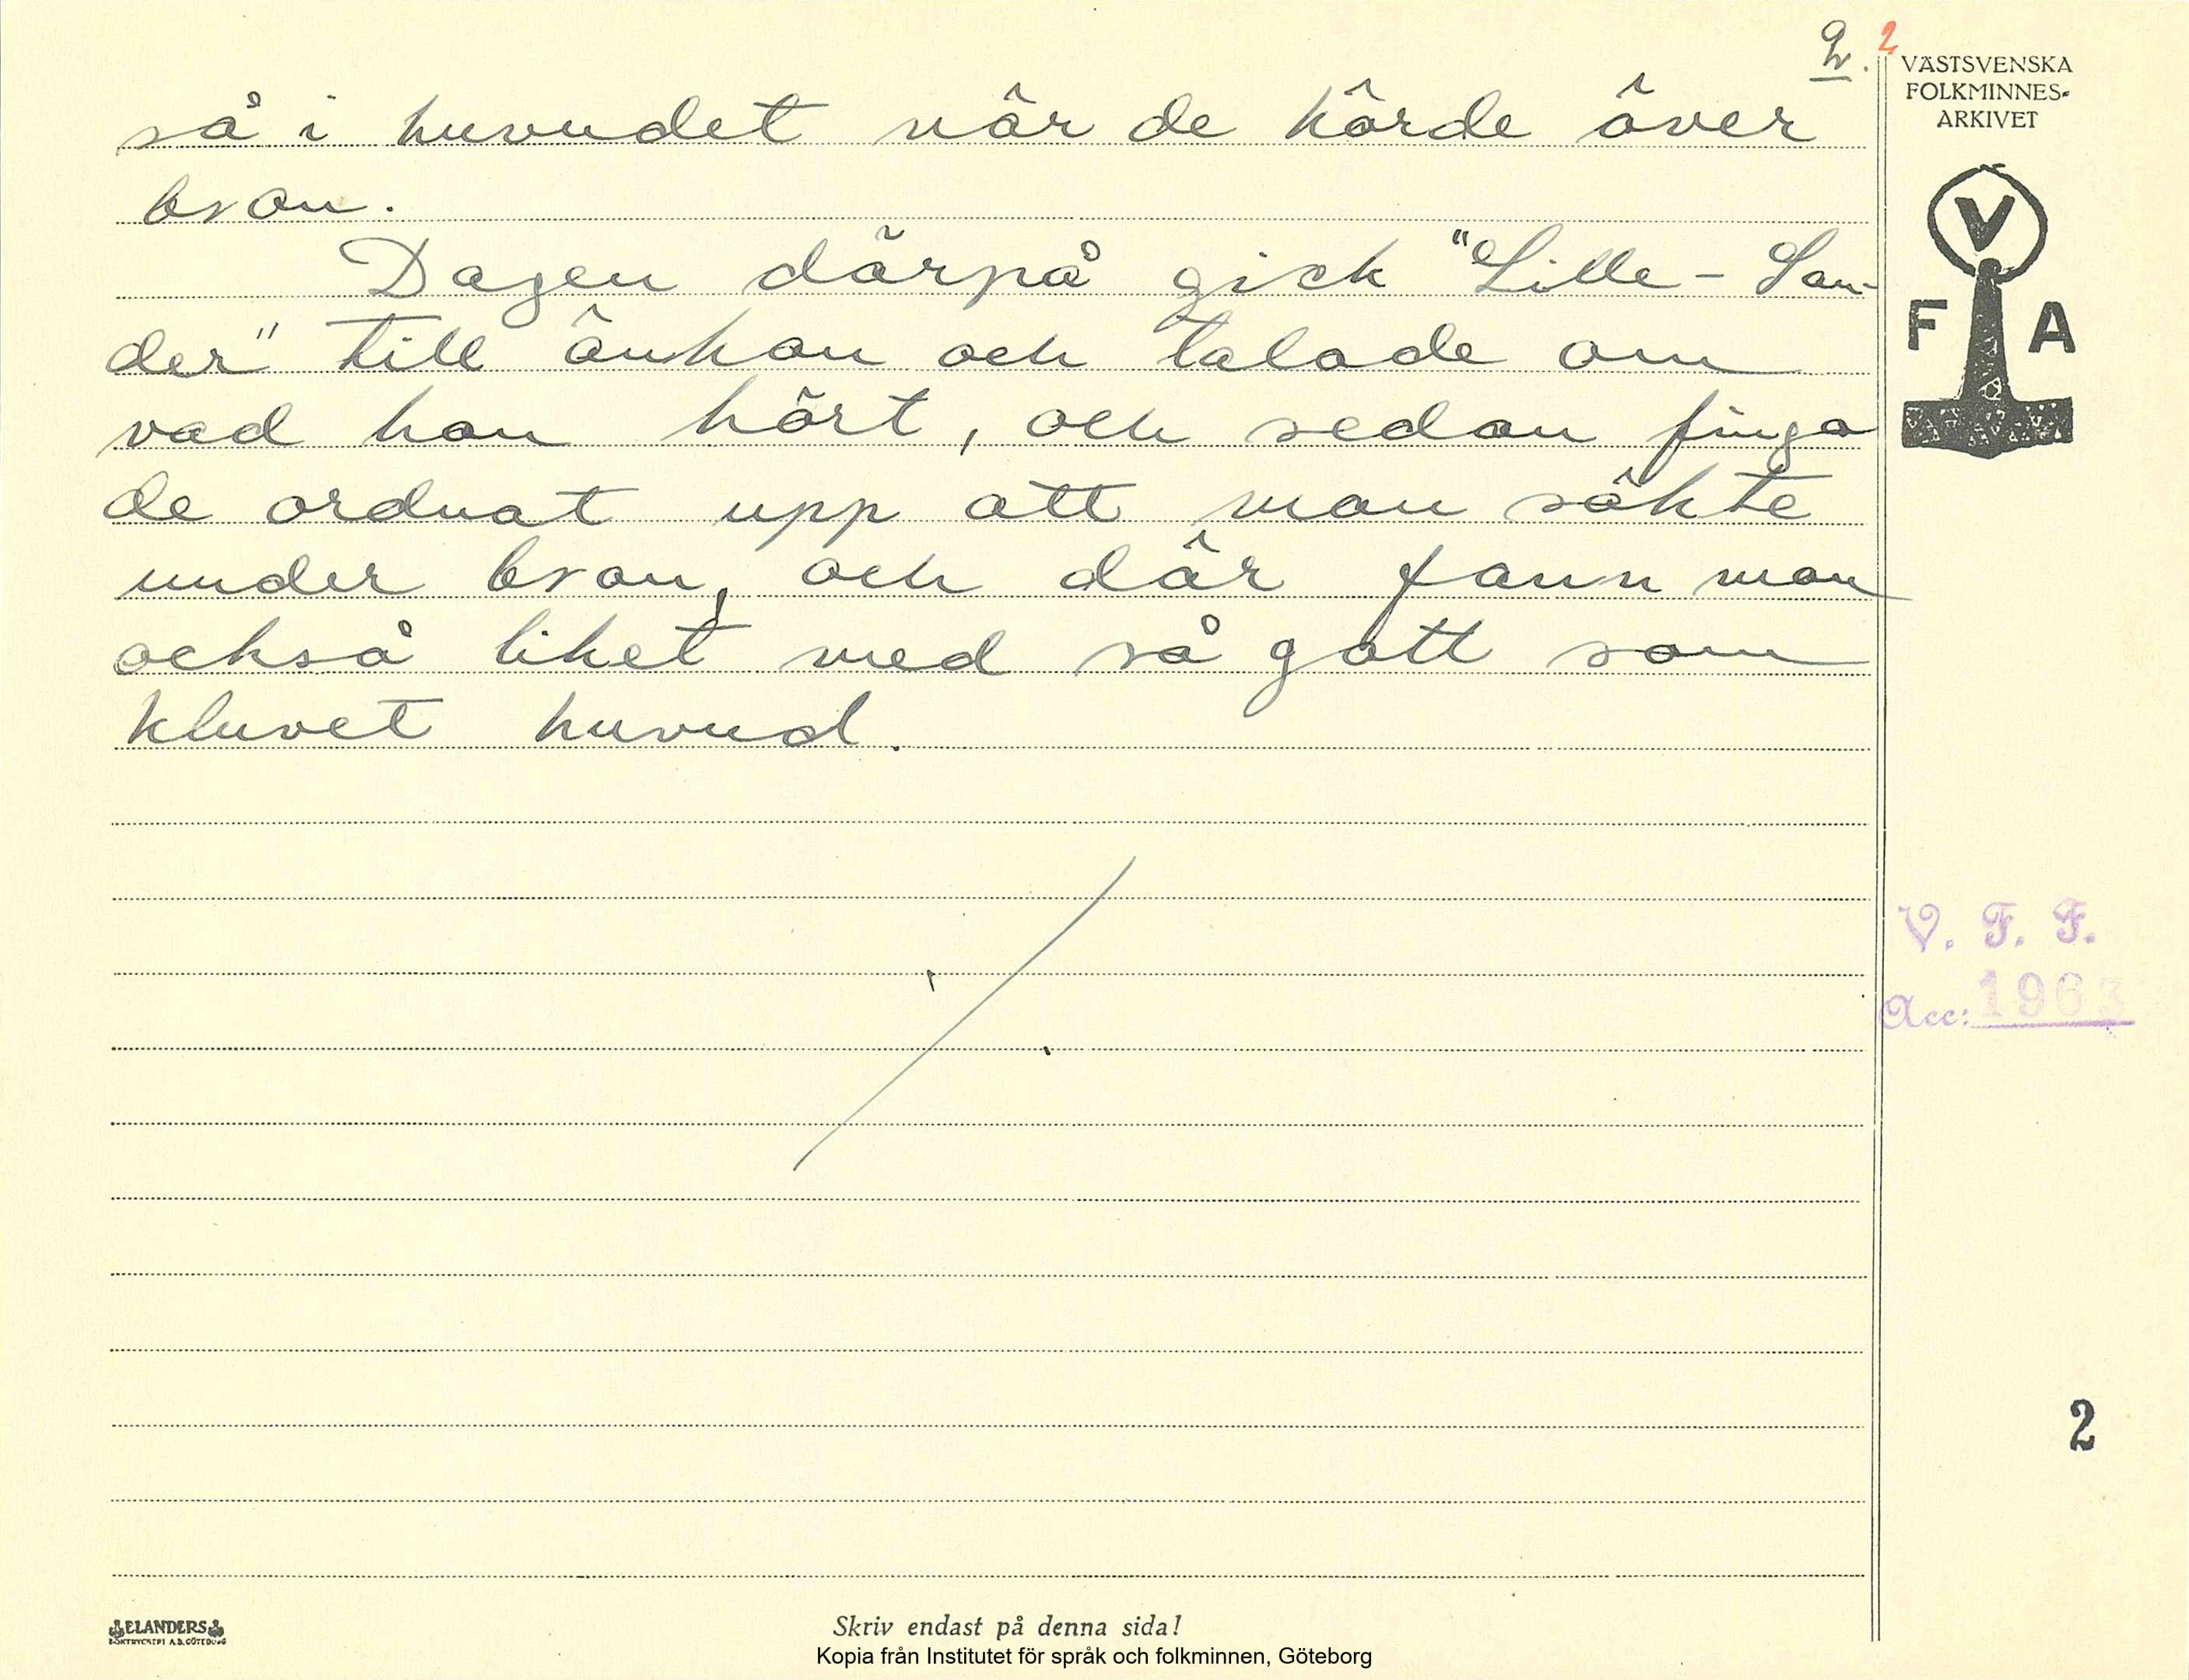 2. 2
VÄSTSVENSKA
FOLKMINNES-
ARKIVET
V
F A
så i huvudet när de körde över
bron.
Dagen därpå gick "Lille-San-
der" till änkan och talade om
vad han hört, och sedan finga
de ordnat upp att man sökte
under bron, och där fann man
också liket med så gott som
kluvet huvud.
V. F. F.
Acc: 1963
2
ELANDERS
BOKTRYCKERI A.B. GÖTEBORG
Skriv endast på denna sida!
Kopia från Institutet för språk och folkminnen, Göteborg